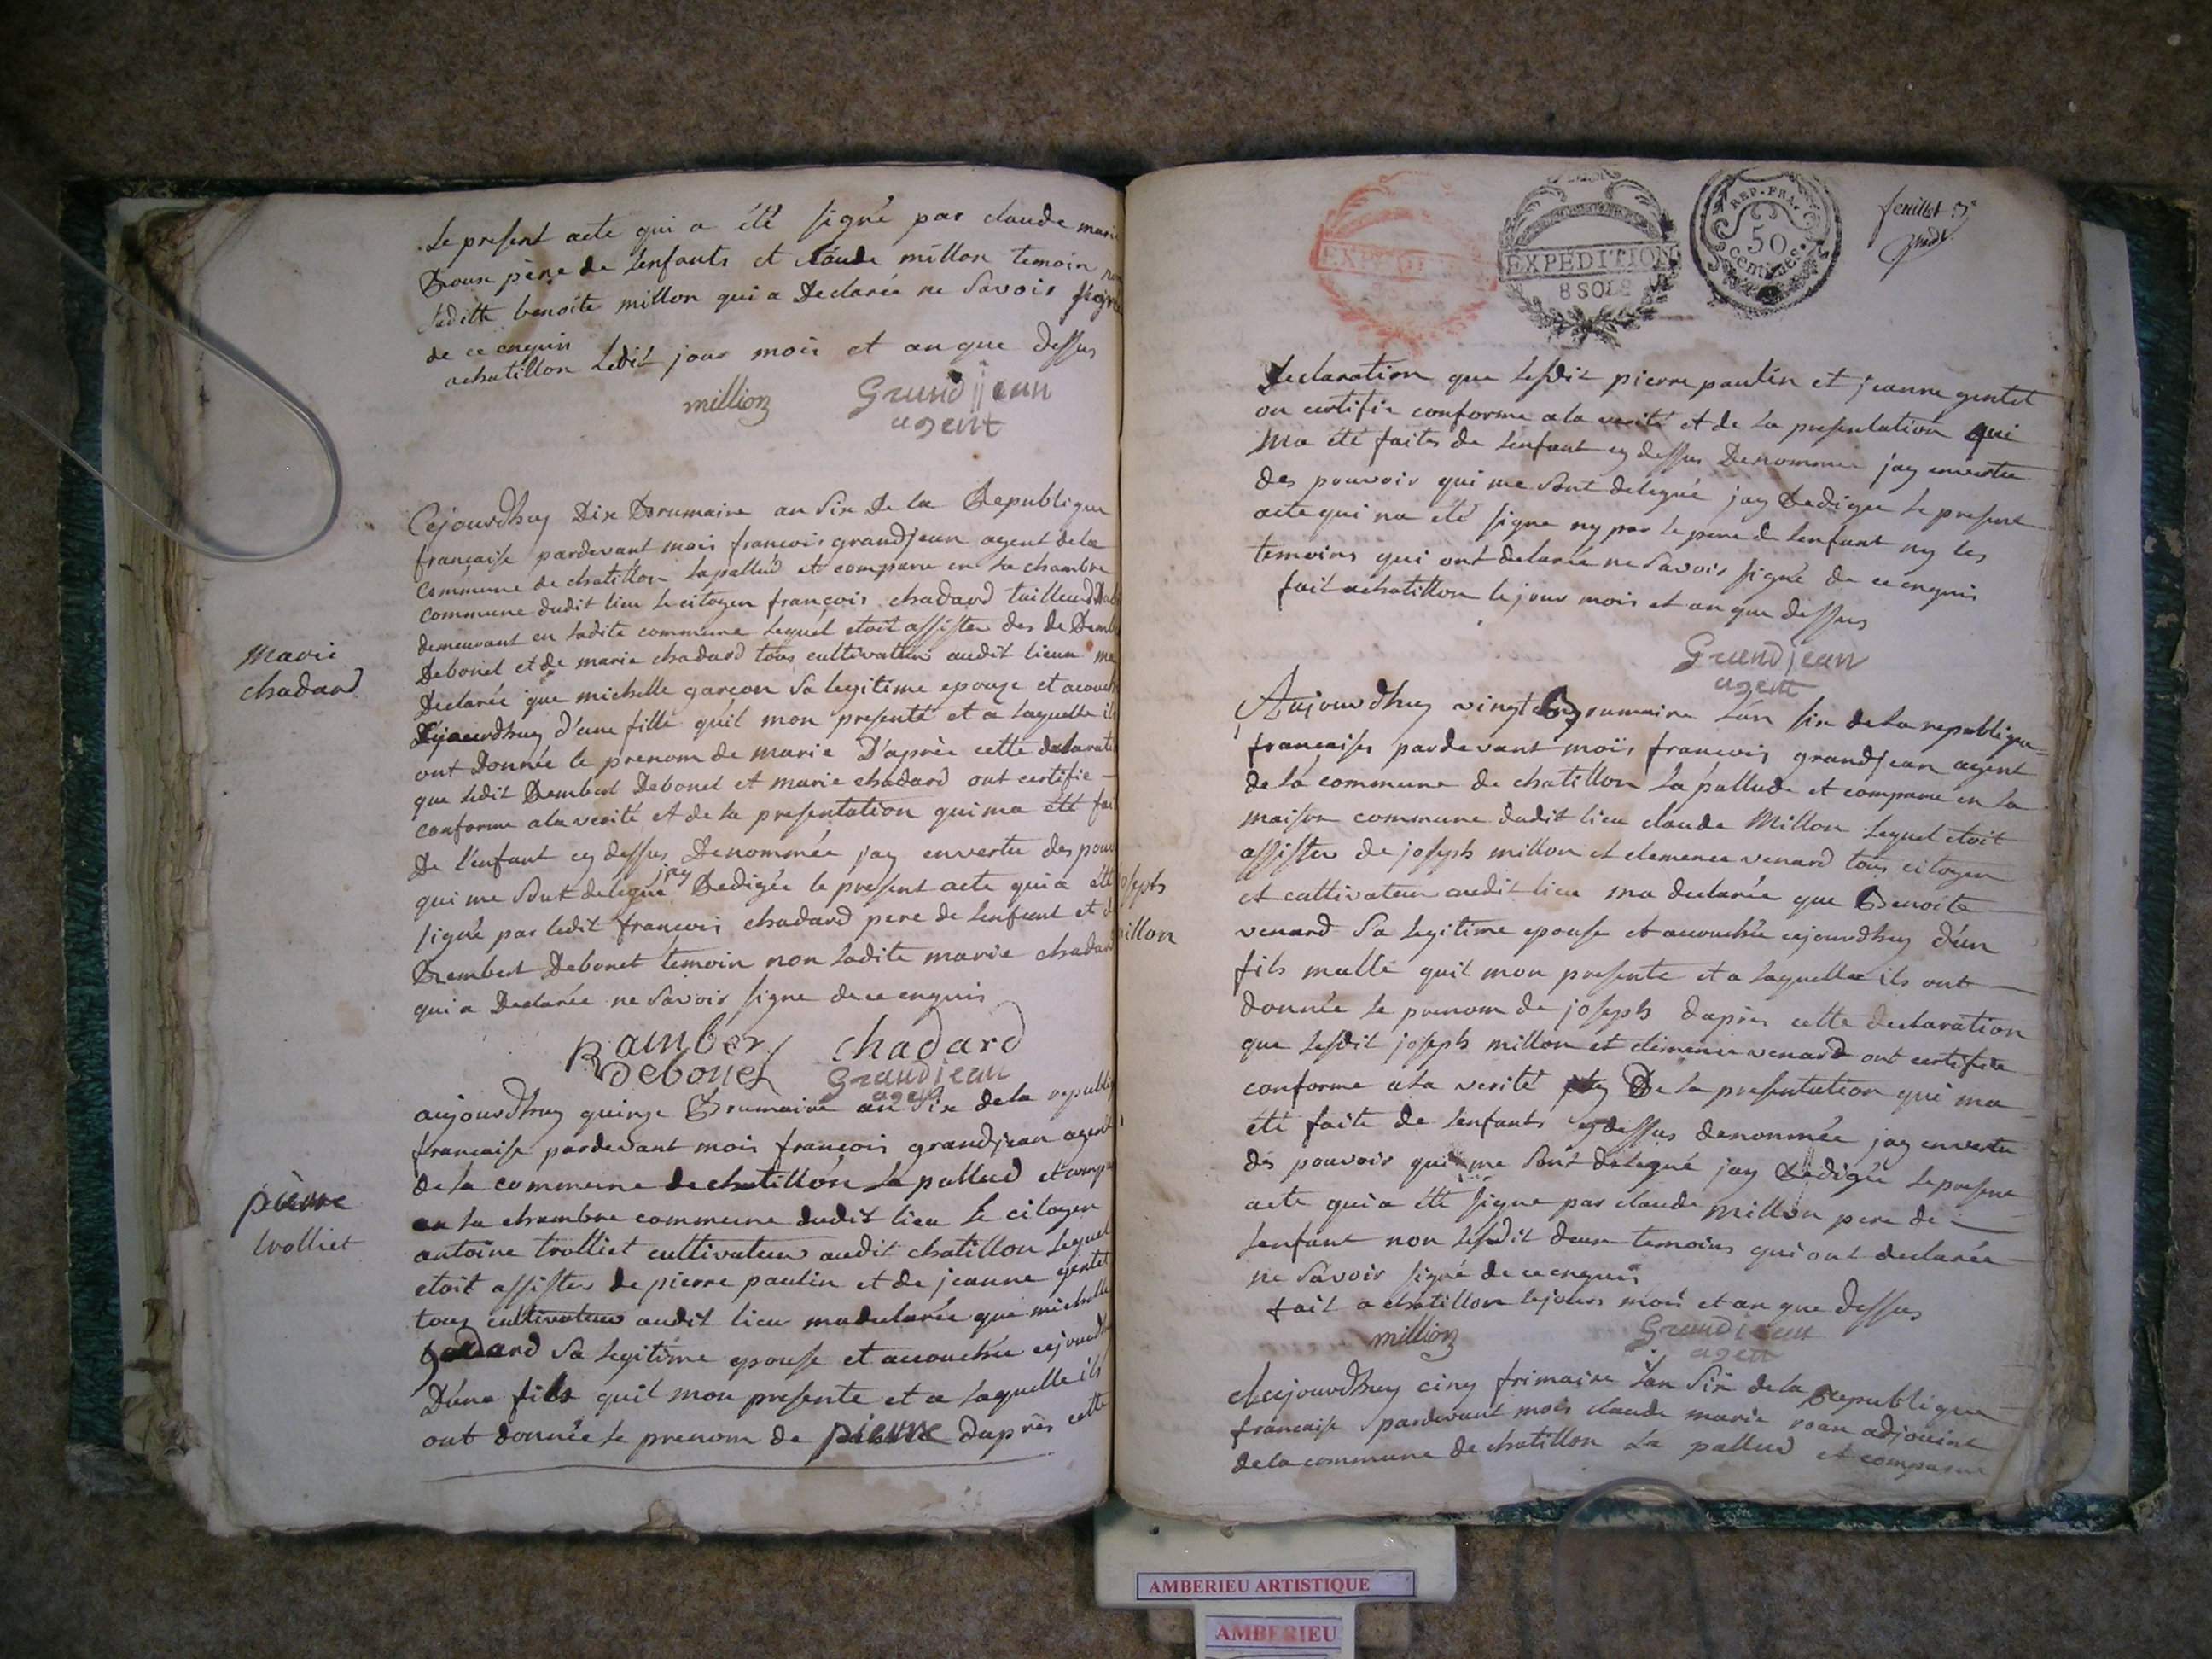 Le present acte qui a été signé par claude marie
père de Lenfants et claude millon temoin non
Laditte benoite millon qui a Declarée ne Savoir signé
de ce enquin
achatillon Ledit jour mois et an que dessus
million Grandjean
agent
marie
chadard
Cejourdhuy Dix Brumaire an Six De la Republique
francaise pardevant mois francois grandjean agent dela
Commune de chatillon Lapallud et comparu en La chambre
commune dudit lieu Le citoyen françois chadard tailleur
demeurant en Ladite commune Lequel etoit assister des de
Debonel et de marie chadard tous cultivateur audit lieux ma
Declarée que michelle garçon Sa legitime epouze et acouch
Dejourdhuy d'une fille quil mon presenté et a Laquelle il
ont Donnée le prenom de marie D'après cette delarati
que ledit Rembert Debonel et marie chadard ont certifie
conforme a la verité et de la presentation qui ma été fai
De l'enfant cy dessus Denommée jay envertu des pouv
qui me Sont delegué jay Redigée le present acte qui a été
signé par ledit francois chadard pere de Lenfant et d
Rembert Debonet temoin non Ladite marie chadard
qui a Declarée ne Savoir signe de ce enquis
Ramber chadard
Debonel Grandjean
agent
pierre
trolliet
aujourdhuy quinze Brumaire an Six dela republi
francaise pardevant mois francois grandjean agent
de la commune de chatillon La pallud et comp
en La chambre commune dudit lieu Le citoyen
antoine trolliet cultivateur audit chatillon Lequel
etoit assister de pierre paulin et de jeanne gentet
tous cultivateur audit lieu madeclarée que michelle
Sa Legitime epouse et accouchée cejourdh
Dune fils quil mon presente et a Laquelle ils
ont donnée Le prenom de pierre Daprès cette
EXPEDITION
EXPEDITION
8 SOLS
REP. FRA.
50
centimes
feuillet 3e
Declaration que Lesdit pierre paulin et jeanne gentet
on certifie conforme a la verité et de La presentation qui
Ma été faites de Lenfant cy dessus Denommee jay envertu
des pouvoir qui me Sont delegué jay Redigee Le present
acte qui na été signe ny par Le pere de Lenfant ny les
temoins qui ont declarée ne Savoir signé de ce enquis
fait achatillon le jour mois et an que dessus
Grandjean
agent
joseph
millon
Aujourdhuy vingt Brumaire L'an six dela republique
francaises pardevant mois francois grandjean agent
de la commune de chatillon La pallude et comparu en La
maison commune dudit lieu claude Millon Lequel etoit
assister de joseph millon et clemence venard tous citoyen
et cultivateur audit lieu ma declarée que Benoite
venard Sa Legitime epouse et accouchée cejourdhuy d'un
fils malle quil mon presente et a Laquelle ils ont
donnée Le prenom de joseph dapres cette declaration
que Lesdit joseph millon et clemence venard ont certifiée
conforme a La verité De La presentation qui ma
été faite de Lenfants cy dessus denommée jay envertu
des pouvoir qui me Sont delegué jay Redigée Le present
acte qui a été signe par claude Millon pere de
Lenfant non Lesdit deux temoins qui ont declarée
ne Savoir signé de ce enquis
fait a chatillon le jours mois et an que dessus
million Grandjean
agent
Aujourdhuy cinq frimaire L'an Six dela Republique
francaise pardevant mois claude marie roux adjoint
dela commune de chatillon La pallud et comparu
AMBERIEU ARTISTIQUE
AMBERIEU